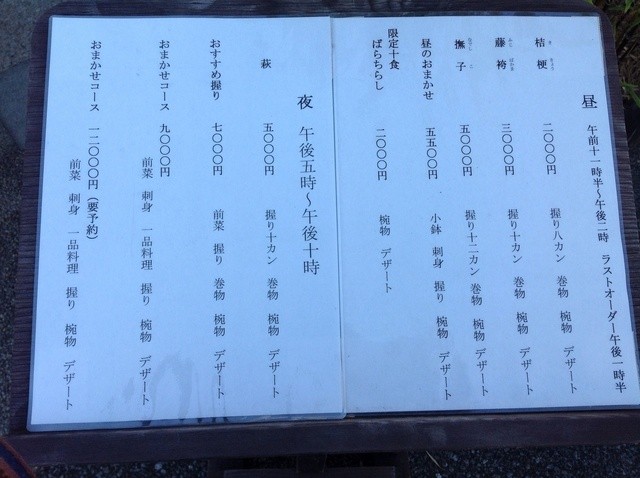 昼 午前十一時半～午後二時 ラストオーダー午後一時半
桔梗 二〇〇〇円 握り八カン 巻物 椀物 デザート
き きょう
藤袴 三〇〇〇円 握り十カン 巻物 椀物 デザート
ふじ ばかま
撫子 五〇〇〇円 握り十二カン 巻物 椀物 デザート
なでし こ
昼のおまかせ 五五〇〇円 小鉢 刺身 握り 椀物 デザート
限定十食
ばらちらし 二〇〇〇円 椀物 デザート
夜 午後五時～午後十時
萩 五〇〇〇円 握り十カン 巻物 椀物 デザート
おすすめ握り 七〇〇〇円 前菜 握り 巻物 椀物 デザート
おまかせコース 九〇〇〇円
前菜 刺身 一品料理 握り 椀物 デザート
おまかせコース 一二〇〇〇円(要予約)
前菜 刺身 一品料理 握り 椀物 デザート